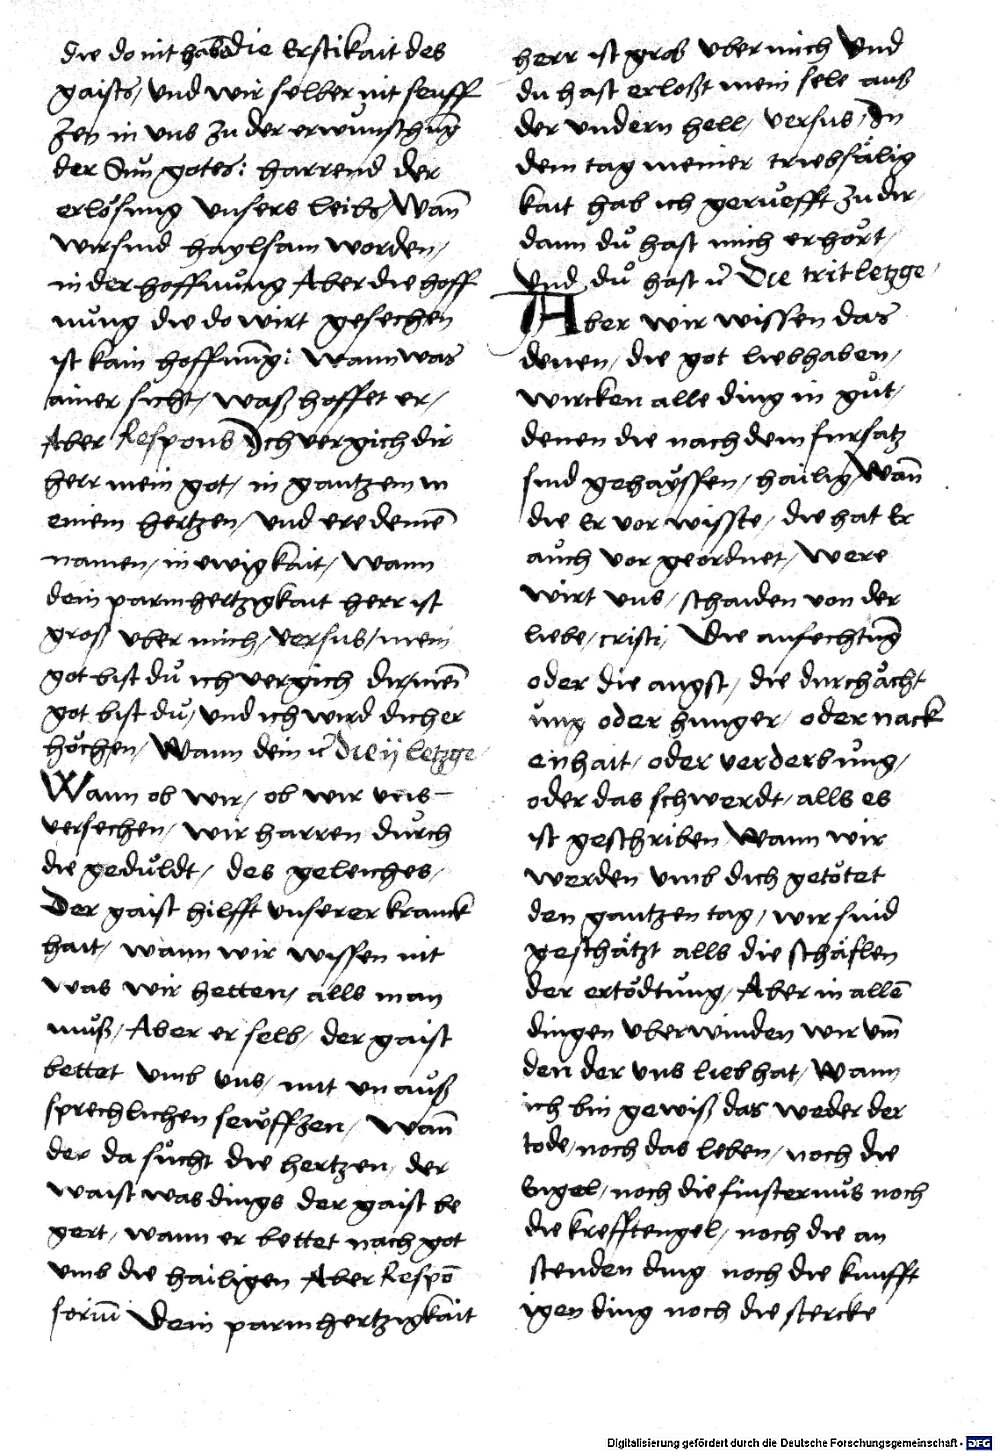 die do nit habñ die Erstikait des
gaists / vnd wir selber nit seuff
zen in vns zu der erwünschũg
der Sün gotes: harrend der
erlösung vnsers leibs / Wañ
wir sind haylsam worden /
in der hoffnůng Aber die hoff
nůng die do wirt gesechen
ist kain hoffnũng: Wann was
ainer sicht / waß hoffet er /
Aber Respons Ich vergich dir
herr mein got / in gantzem m
einem hertzen / vnd ere deinẽ
namen / in ewigkait / Wann
dein parmhertzigkait herr ist
groß vber mich / versus / mein
got bist dů ich vergich dir / meĩ
got bist dů / vnd ich wird dich er
höchen / Wann dein ꝛc̃ die ij letzge
Wann ob wir / ob wir vns –
versechen / wir harren důrch
die gedůldt / des geleiches /
Der gaist hilfft vnserer kranck
hait / wann wir wissen nit
was wir betten / alls man
můß / Aber er selb / der gaist
bettet vmb vns / mit vnauß
sprechlichen sewffzen / Wañ
der da sůcht die hertzen / der
waist was dings der gaist be
gert / wann er bettet nach got
vmb die hailigen Aber Respõ
soriũ Dein parmhertzigkait
herr ist gros vber mich Vnd
du hast erloßt mein sele auß
der vndern hell / versus / In
dem tag meiner trŭebsälig
kait hab ich gerůefft zu dir /
dann dů hast mich erhört /
Vnd dů hast ꝛc̃ Die trit letzge /
Aber wir wissen das
denen / die got liebhaben /
wircken alle ding in gůt /
denen die nach dem fursatz
sind gehaÿssen / hailig / Wañ
die Er vor wisste / die hat Er
aůch vor geordnet / Were
wirt vns / schaiden von der
liebe / cristi / Die anfechtũg
oder die angst / die durchächt
ůng oder hunger / oder nack
enhait / oder verderbůng /
oder das schwerdt / alls es
ist geschriben Wann wir
werden vmb dich getötet
den gantzen tag / wir sind
geschätzt alls die schäflen
der ertödtůng / Aber in allẽ
dingen vberwinden wir vm̃
den der vns lieb hat / Wann
ich bin gewiß das weder der
tode / noch das leben / noch die
Engel / noch die finsternůs noch
die krefftengel / noch die an
stenden ding noch die kunfft
igen ding noch die stercke
Digitalisierung gefördert durch die Deutsche Forschungsgemeinschaft - DFG